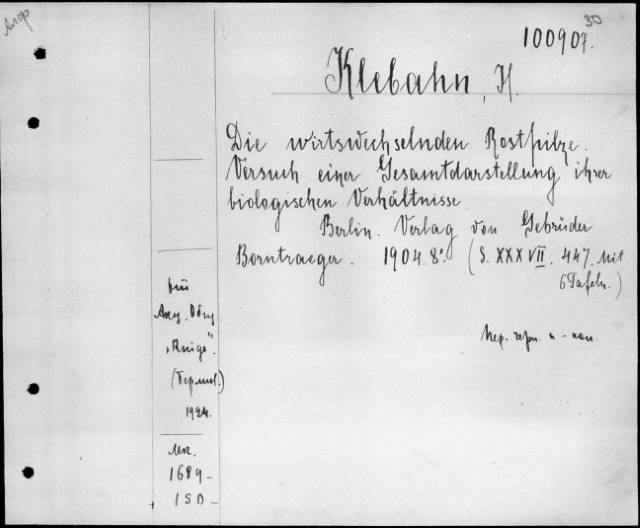 30
100907.
Klebahn, H.
Die wirtswechselnden Rostpilze.
Versuch einer Gesamtdarstellung ihrer
biologischen Verhältnisse
Berlin. Verlag von Gebrüder
Borntraeger. 1904. 8°. (S. XXXVII. 447. Mit
6 Tafeln.)
"Книга".
1924.
1689-
150-